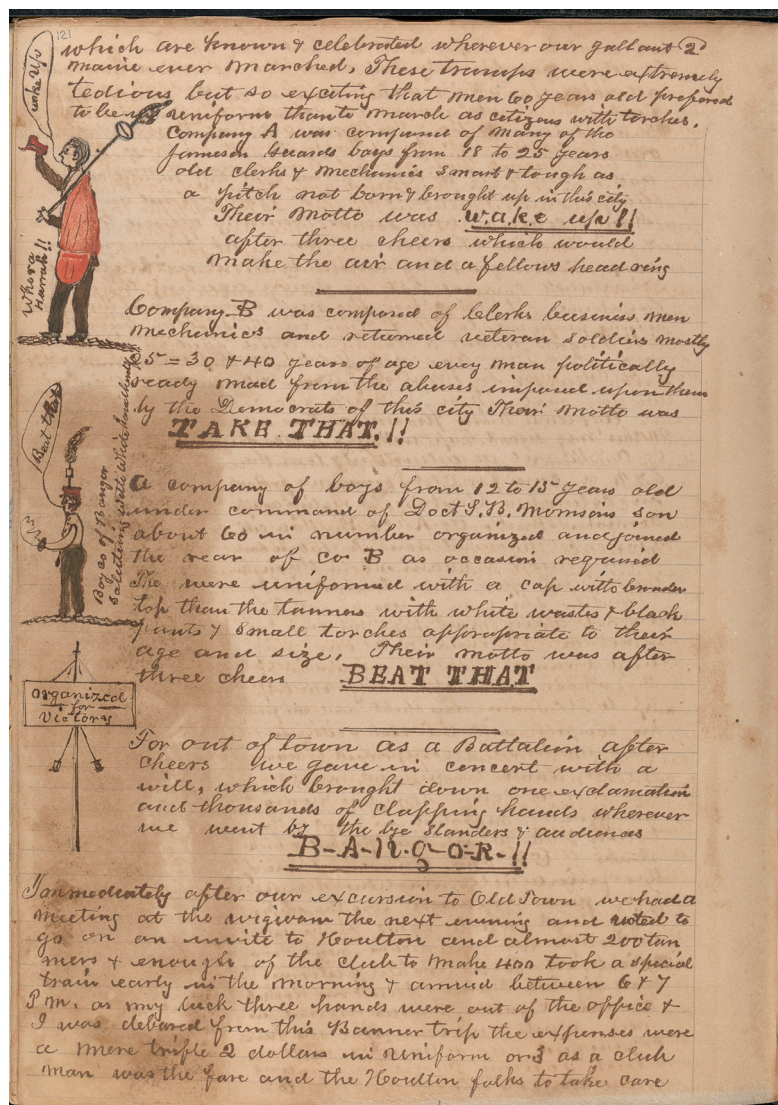 121
which are known & celebrated wherever our gallant 2
maine ever marched. These tramps were extremely
tedious but so exciting that men 60 years old prefered
to be in uniform than to march as citizens with torches.
Company A was composed of many of the
Jameson Guards boys from 18 to 25 years
old clerks & mechanics smart & tough as
a pitch not born & brought up in this city
Their motto was wake up!!
after three cheers which would
make the air and a fellows head ring
wake up
Whora
Harrah!!
Company B was composed of Clerks business men
mechanics and returned veteran soldiers mostly
25=30 & 40 years of age evry man politically
ready mad from the abuses imposed upon them
by the Democrats of this city Their motto was
TAKE THAT.!!
Beat that
Boyas of Bangor
Saluteing with White handkerchiefs
A company of boys from 12 to 15 years old
under command of Doct S.B. Morrisons son
about 60 in number organized and joined
the rear of co B as occasion required
The were uniformed with a cap with broader
top than the tanners with white wastes & black
pants & small torches appropriate to their
age and size. Their motto was after
three cheers BEAT THAT
Organized
for
Victory
For out of town as a Battalion after
cheers we gave in concert with a
will, which brought down one exclamation
and thousands of clapping hands wherever
we went by the bye standers & audiences
B-A-N-G-O-R-!!
Immediately after our excursion to Old Town we had a
meeting at the wigwam the next evening and voted to
go on an invite to Houlton and almost 200 tan
ners & enough of the club to make 400 took a special
train early in the morning & arrived between 6 & 7
P.m. as my luck three hands were out of the office &
I was debared from this Banner trip the expenses were
a mere trifle 2 dollars in uniform or 3 as a club
man was the fare and the Houlton folks to take care